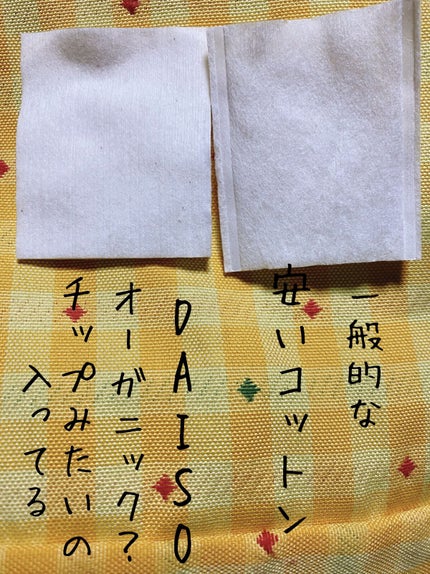 一般的な
安いコットン
DAISO
オーガニック?
チップみたいの
入ってる